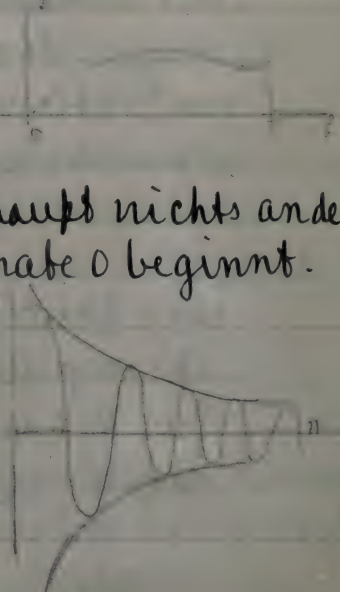 0
haupt nichts ande
nate 0 beginnt.